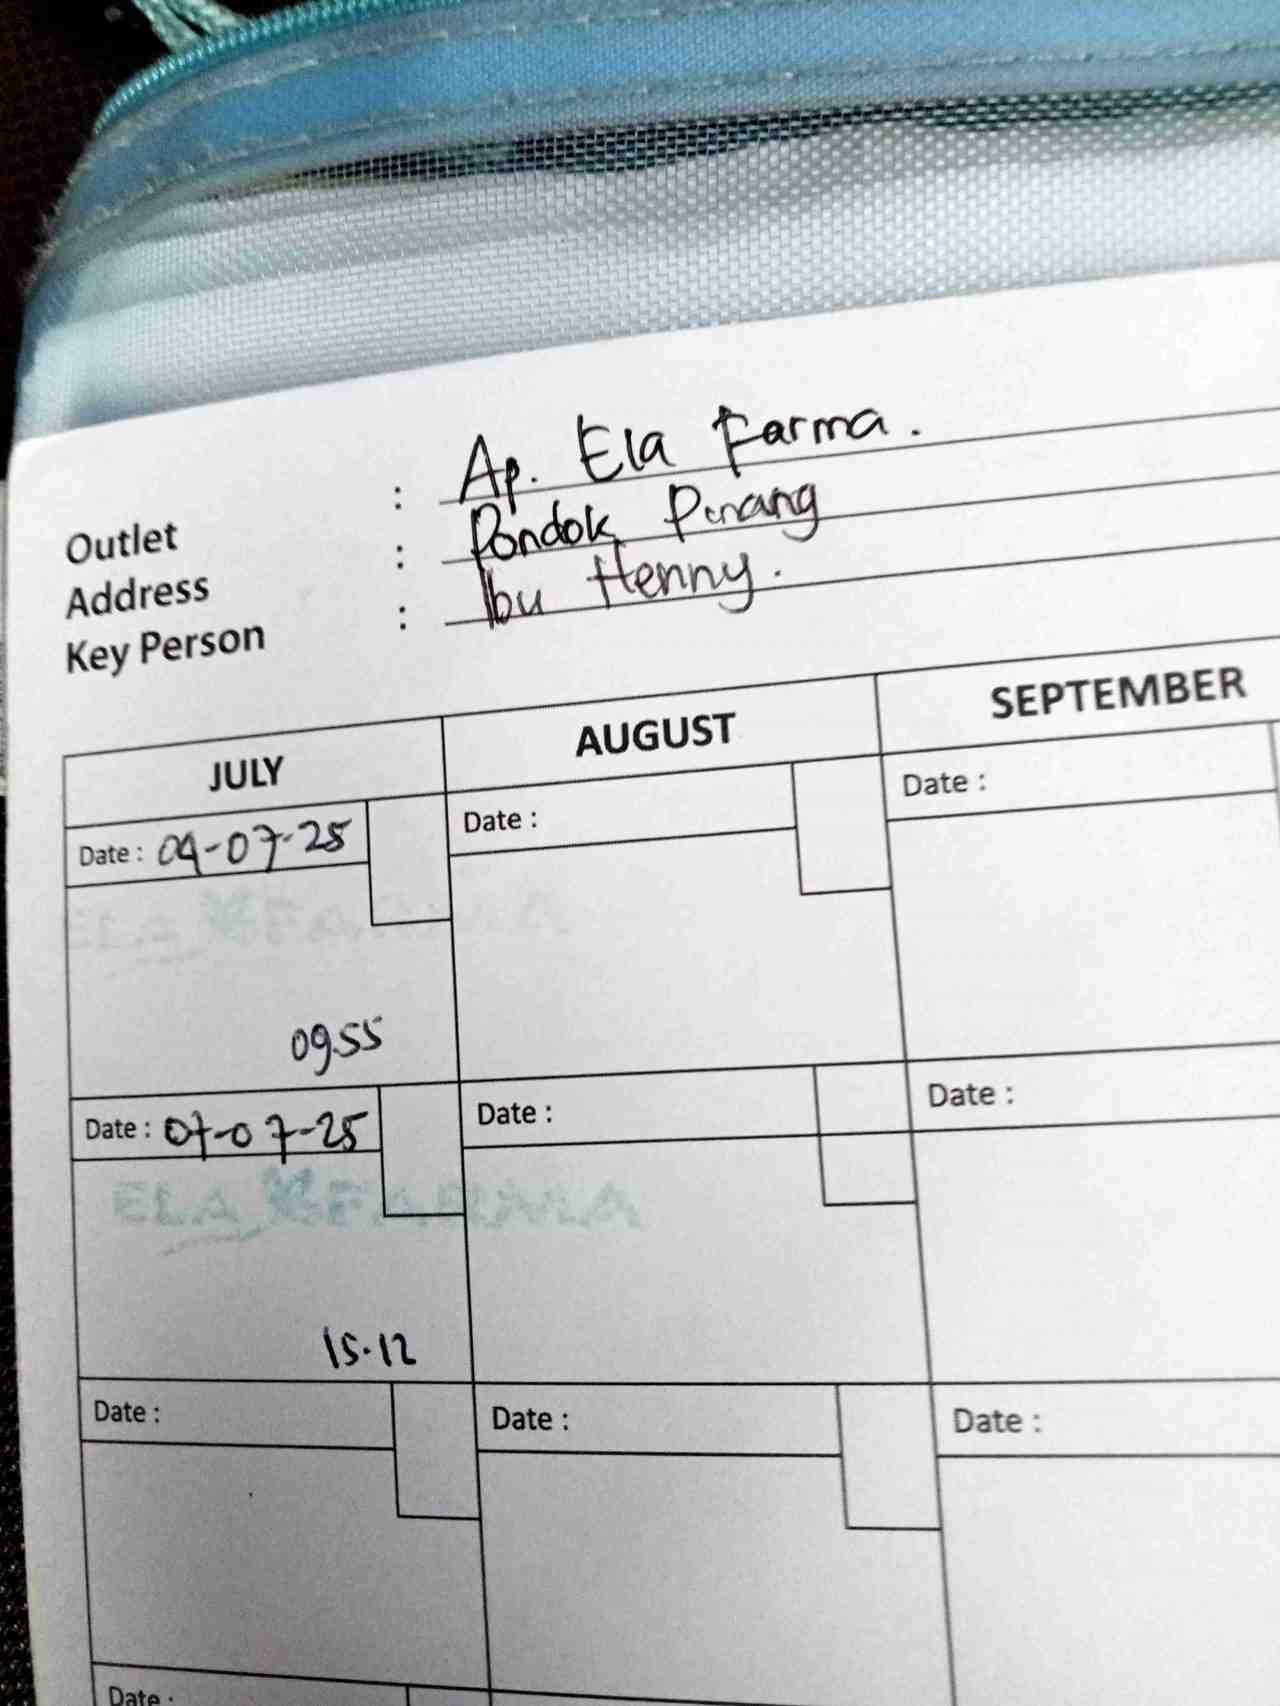 Outlet : Ap. Ela Farma.
Address : Pondok Pinang
Key Person : Ibu Henny.
JULY AUGUST SEPTEMBER
Date : 04-07-25 Date : Date :
ELA FARMA
09.55
Date : 07-07-25 Date : Date :
ELA FARMA
15.12
Date : Date : Date :
Date :